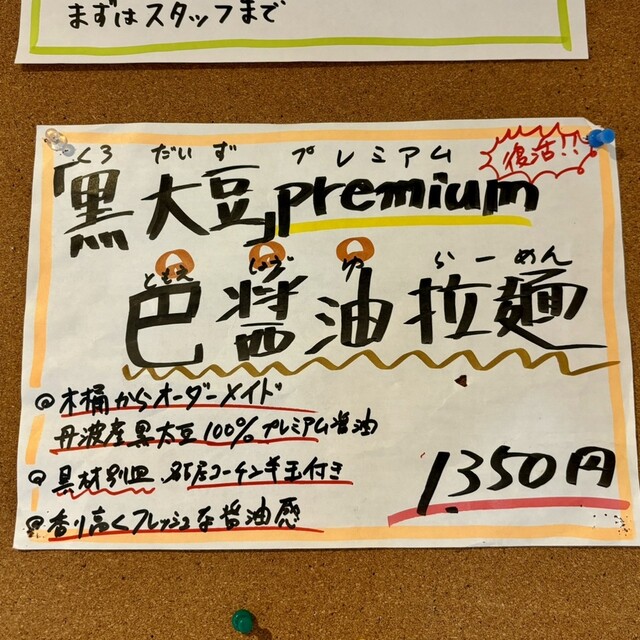 まずはスタッフまで
復活!!
くろ だいず プレミアム
「黒大豆」premium
ともえ しょうゆ らーめん
巴醤油拉麺
◎木桶からオーダーメイド
丹波産黒大豆100%プレミアム醤油
◎具材別皿、名古屋コーチン半玉付き
◎香り高くフレッシュな醤油感
1,350円